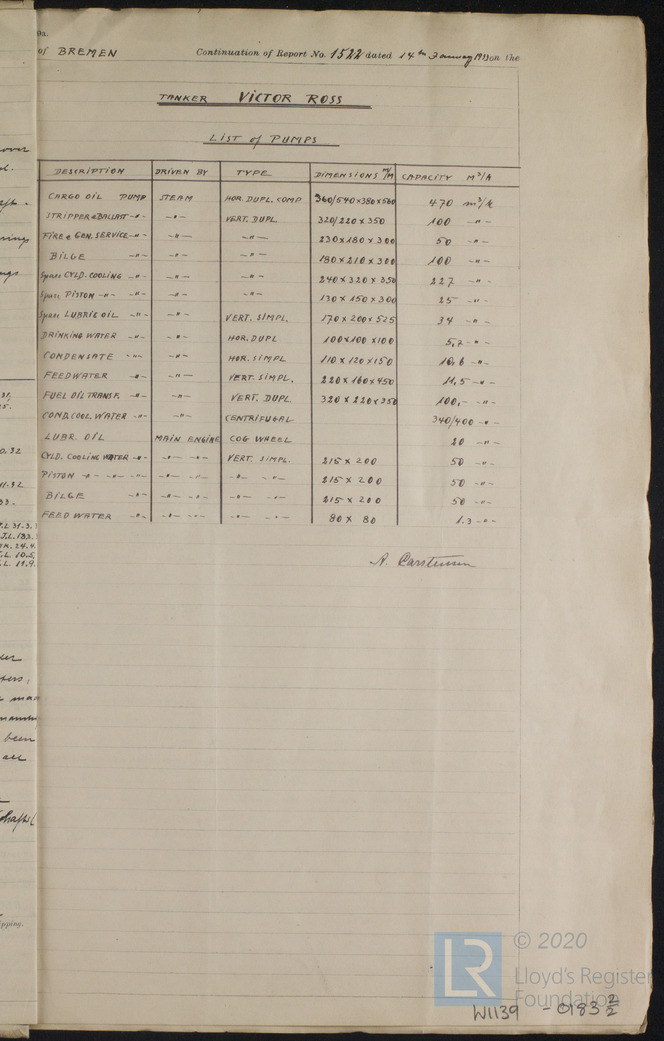 of BREMEN Continuation of Report No. 1522 dated 14th January 1933 on the
TANKER VICTOR ROSS
LIST of PUMPS
DESCRIPTION DRIVEN BY TYPE DIMENSIONS M/M CAPACITY M³/h
CARGO OIL PUMP STEAM HOR. DUPL. COMP 360/540×380×560 470 m³/h
STRIPPER & BALLAST -"- -"- VERT. DUPL. 320/220 × 350 100 -"-
FIRE & GEN. SERVICE -"- -"- -"- 230×180 × 300 50 -"-
BILGE -"- -"- -"- 180×210 × 300 100 -"-
Spare CYLD. COOLING -"- -"- -"- 240×320 × 350 227 -"-
Spare PISTON -"- -"- -"- -"- 130 × 150 × 300 25 -"-
Spare LUBRIC OIL -"- -"- VERT. SIMPL. 170 × 200 × 525 34 -"-
DRINKING WATER -"- -"- HOR. DUPL 100×100 ×100 5,7 -"-
CONDENSATE -"- -"- HOR. SIMPL 110 × 120 ×150 10,6 -"-
FEEDWATER -"- -"- VERT. SIMPL. 220 × 160 × 450 11,5 -"-
FUEL OIL TRANSF. -"- -"- VERT. DUPL 320 × 220 × 350 100,- -"-
COND. COOL. WATER -"- -"- CENTRIFUGAL 340/400 -"-
LUBR. OIL MAIN ENGINE COG WHEEL 20 -"-
CYLD. COOLING WATER -"- -"- -"- VERT. SIMPL. 215 × 200 50 -"-
PISTON -"- -"- -"- -"- -"- -"- -"- 215 × 200 50 -"-
BILGE -"- -"- -"- -"- -"- 215 × 200 50 -"-
FEED WATER -"- -"- -"- -"- -"- 80 × 80 1.3 -"-
A. Carstensen
LR
© 2020
Lloyd's Register
Foundation
W1139 - 0183 2/2